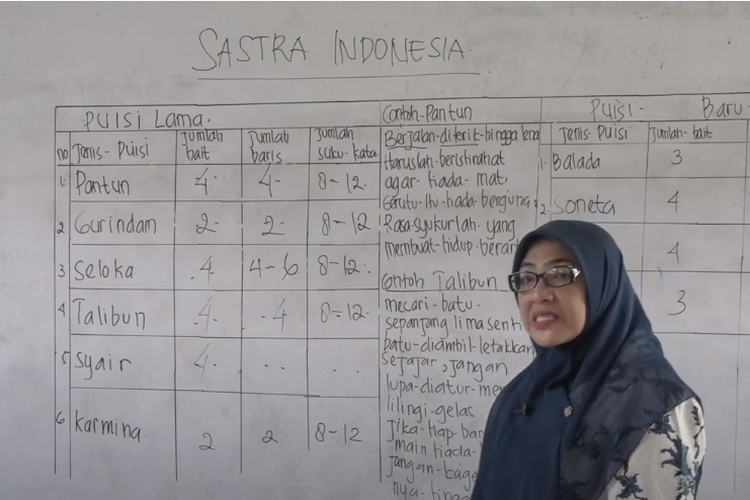 SASTRA INDONESIA
PUISI Lama.
no Jenis-Puisi Jumlah bait Jumlah baris Jumlah suku-kata
1. Pantun 4- 4- 8-12.
2 Gurindam 2- 2- 8-12
3 Seloka .4 4-6 8-12.
4 Talibun .4. .4 8-12.
5 Syair 4. .. ...
6 Karmina. 2 2 8-12
Contoh-Pantun
Berjalan-diterik-hingga
Haruslah-beristirahat
agar-tiada-mat,
itu-tiada-berguna,
Rasa-syukurlah-yang
membuat-hidup-berar
Contoh Talibun
mecari-batu-
sepanjang lima senti
batu-diambil-letakkan
sejajar, jangan
lupa-diatur-me
lilingi-gelas.
Jika-tiap-bar
main tiada-
jangan-
nya-hingg
PUISI- Baru
Jenis-Puisi Jumlah-bait
1. Balada 3
2. Soneta 4
4
3